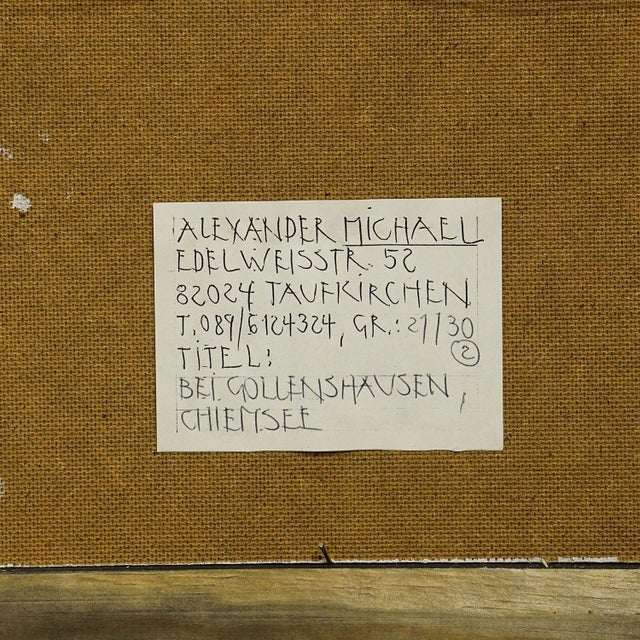 ALEXANDER MICHAEL
EDELWEISSTR. 52
82024 TAUFKIRCHEN
T. 089/6124324, GR.: 21/30
2
TITEL:
BEI GOLLENSHAUSEN,
CHIEMSEE